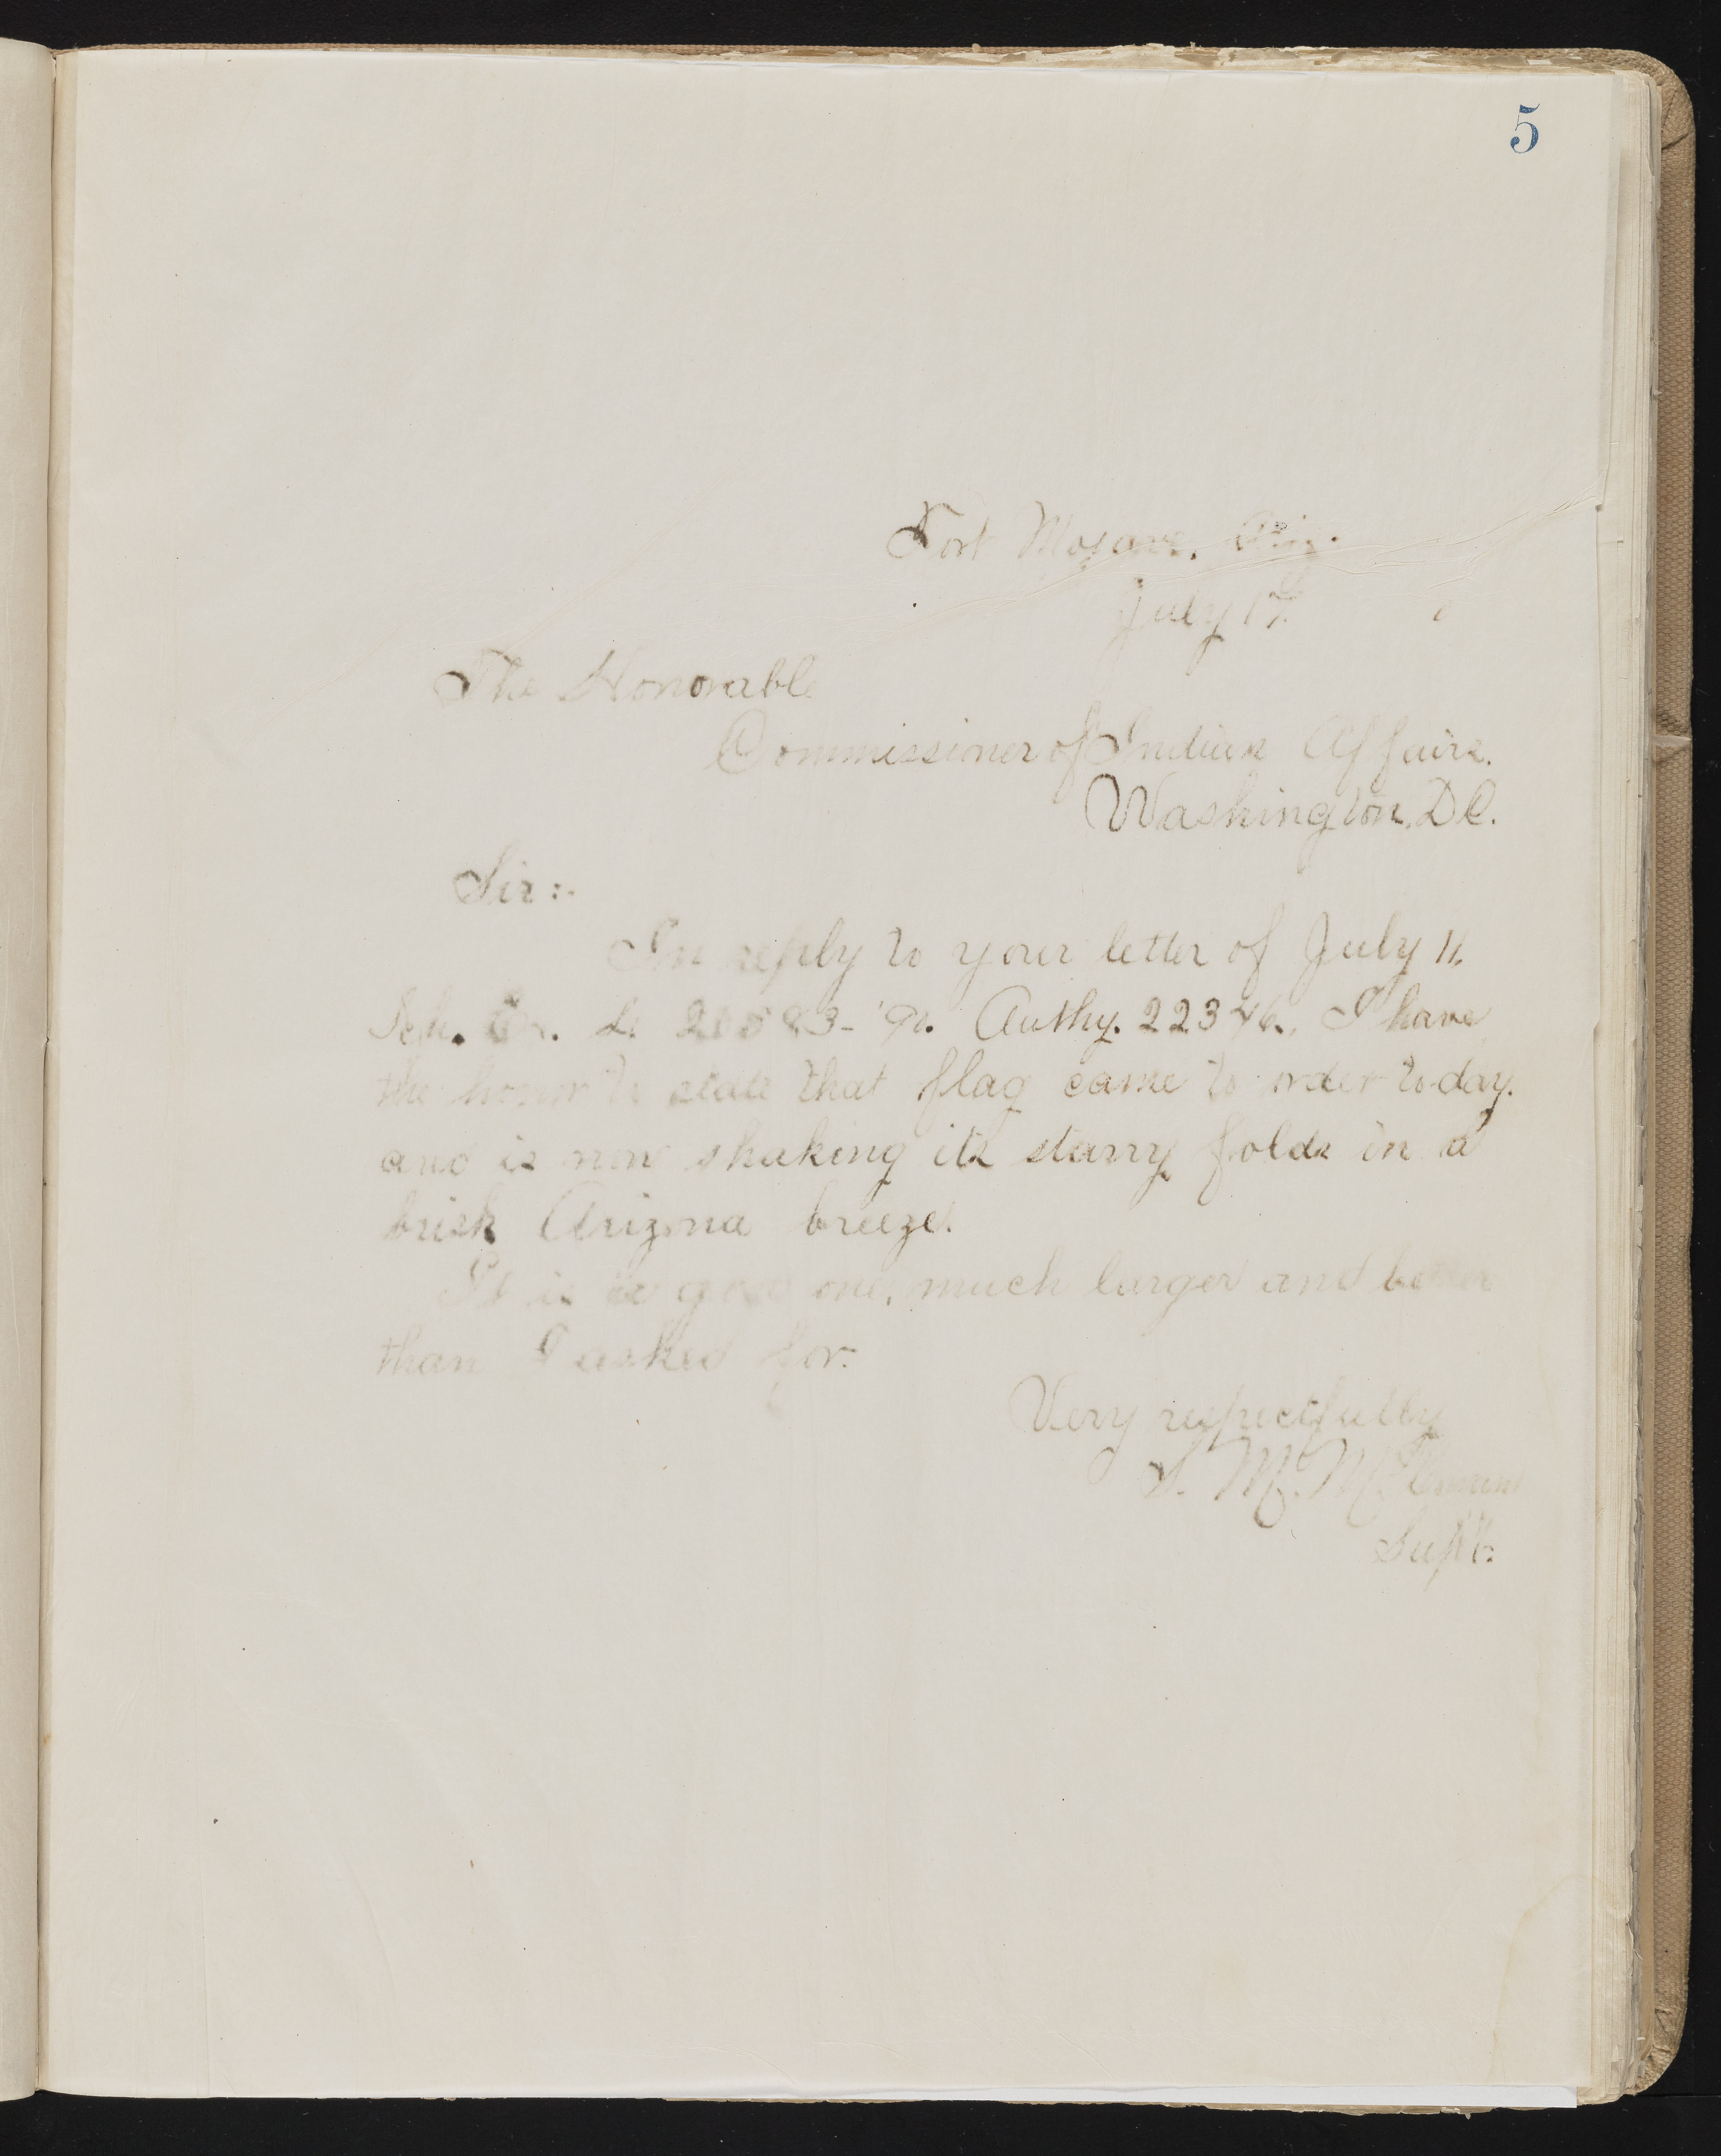 5
Fort Mojave, Ariz.
July 17.
The Honorable
Commissiner of Indian Affairs.
Washington, D.C.
Sir:-
In reply to your letter of July 11,
Sch. L. 20583-'90. Authy. 22346., I have
the honor to state that flag came to order to-day.
and is now shaking its starry folds in a
brisk Arizona breeze.
It is a good one, much larger and better
than I asked for.
Very respectfully
S. M. McCowan
Supt.